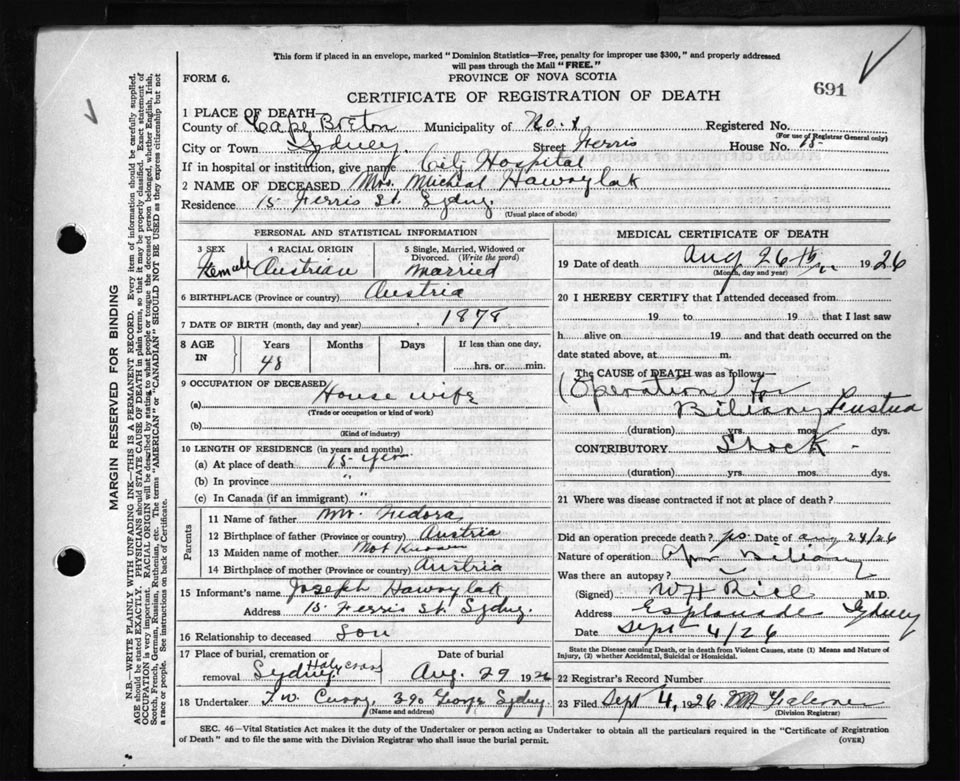 This form if placed in an envelope, marked "Dominion Statistics—Free, penalty for improper use $300," and properly addressed
will pass through the Mail "FREE."
FORM 6.
PROVINCE OF NOVA SCOTIA
691
CERTIFICATE OF REGISTRATION OF DEATH
1 PLACE OF DEATH
County of Cape Breton Municipality of No. 1 Registered No.
(For use of Registrar General only)
City or Town Sydney. Street Ferris House No. 15
If in hospital or institution, give name City Hospital
2 NAME OF DECEASED Mrs. Micheal Hawrylak
Residence 15 Ferris St. Sydney.
(Usual place of abode)
PERSONAL AND STATISTICAL INFORMATION
3 SEX 4 RACIAL ORIGIN 5 Single, Married, Widowed or Divorced. (Write the word)
Female Austrian Married
6 BIRTHPLACE (Province or country) Austria
7 DATE OF BIRTH (month, day and year) 1878
8 AGE IN Years Months Days If less than one day,
48 hrs. or min.
9 OCCUPATION OF DECEASED
(a) House wife
(Trade or occupation or kind of work)
(b)
(Kind of industry)
10 LENGTH OF RESIDENCE (in years and months)
(a) At place of death 15 yrs
(b) In province "
(c) In Canada (if an immigrant) "
Parents
11 Name of father Mr. Fudora
12 Birthplace of father (Province or country) Austria
13 Maiden name of mother Not Known
14 Birthplace of mother (Province or country) Austria
15 Informant's name Joseph Hawrylak
Address 15 Ferris St. Sydney.
16 Relationship to deceased Son
17 Place of burial, cremation or removal Date of burial
Sydney Holy Cross Aug. 29 1926
18 Undertaker T. W. Curry, 390 George Sydney.
(Name and address)
MEDICAL CERTIFICATE OF DEATH
19 Date of death Aug 26th 1926
(Month, day and year)
20 I HEREBY CERTIFY that I attended deceased from
19 to 19 that I last saw
h alive on 19 and that death occurred on the
date stated above, at m.
The CAUSE of DEATH was as follows:
(Operation) for
Biliary
(duration) yrs. mos. dys.
CONTRIBUTORY Shock -
(duration) yrs. mos. dys.
21 Where was disease contracted if not at place of death?
Did an operation precede death? Date of Aug 24/26
Nature of operation Biliary
Was there an autopsy?
(Signed) W H Rice M.D.
Address Esplanade Sydney
Date Sept 4/26
State the Disease causing Death, or in death from Violent Causes, state (1) Means and Nature of
Injury, (2) whether Accidental, Suicidal or Homicidal.
22 Registrar's Record Number
23 Filed Sept 4, 1926
(Division Registrar)
SEC. 46—Vital Statistics Act makes it the duty of the Undertaker or person acting as Undertaker to obtain all the particulars required in the "Certificate of Registration
of Death" and to file the same with the Division Registrar who shall issue the burial permit.
(OVER)
MARGIN RESERVED FOR BINDING
N.B.—WRITE PLAINLY WITH UNFADING INK—THIS IS A PERMANENT RECORD. Every item of information should be carefully supplied.
AGE should be stated EXACTLY. PHYSICIANS should STATE CAUSE OF DEATH in plain terms, so that it may be properly classified. Exact statement of
OCCUPATION is very important. RACIAL ORIGIN will be described by stating to what people or tongue the deceased person belonged, whether English, Irish,
Scotch, French, German, Russian, Ruthenian, etc. The terms "AMERICAN" or "CANADIAN" SHOULD NOT BE USED as they express citizenship but not
a race or people. See instructions on back of Certificate.